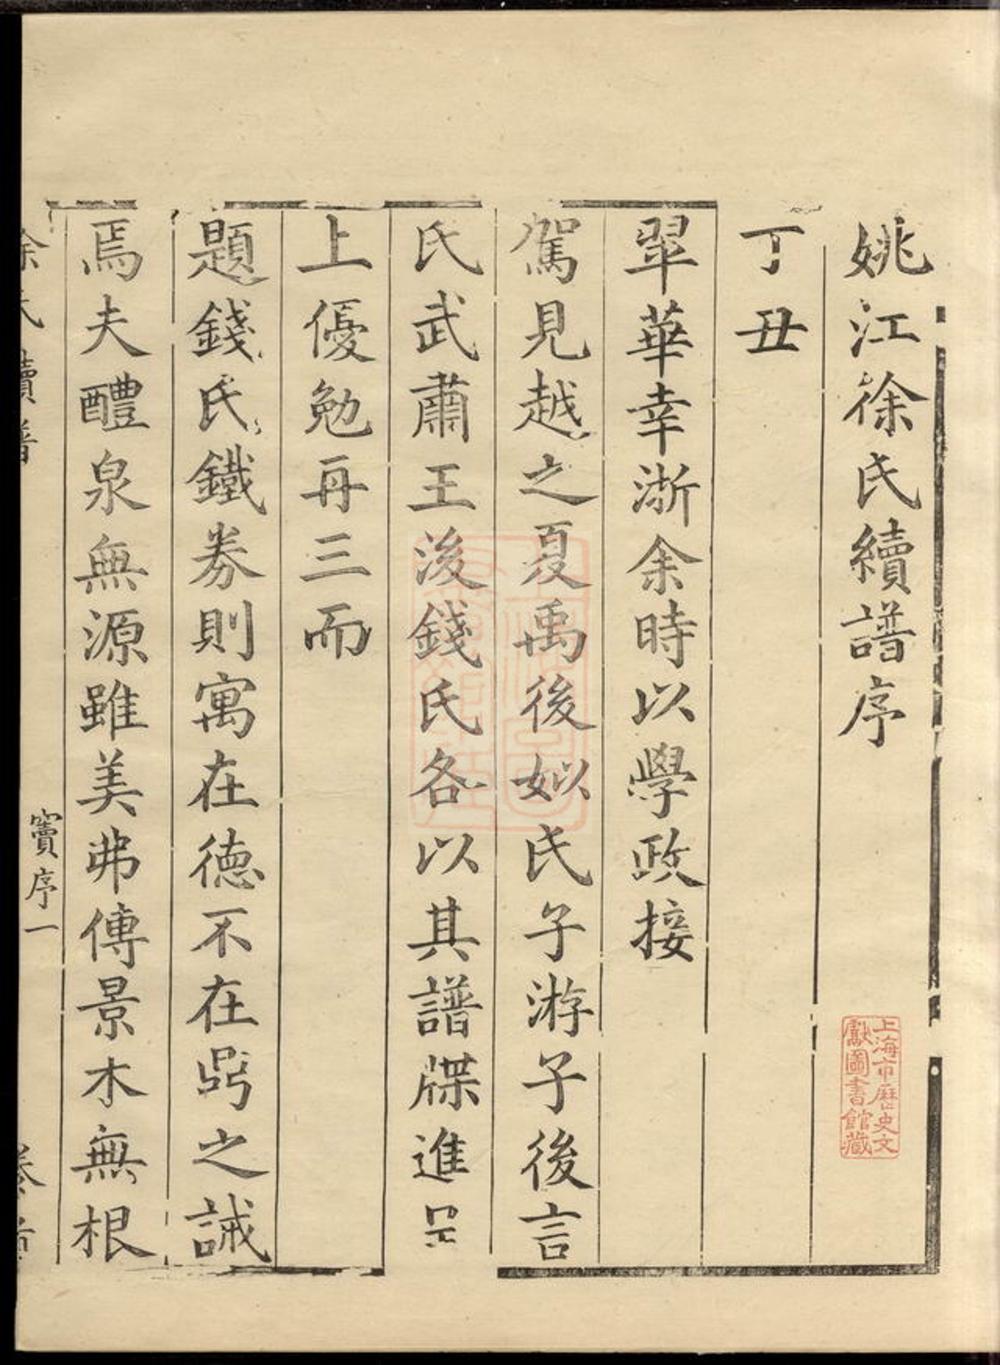 姚江徐氏續譜序
丁丑
翠華幸浙余時以學政接
駕見越之夏禹後姒氏子游子後言
氏武肅王後錢氏各以其譜牒進呈
上優勉再三而
題錢氏鐵券則寓在德不在武之誡
焉夫醴泉無源雖美弗傳景木無根
徐氏續譜
竇序一
卷首
上海市歷史文
獻圖書館藏